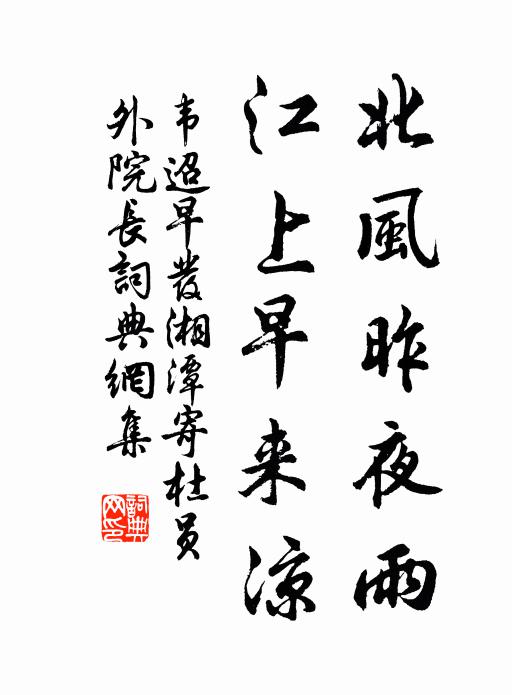 北風昨夜雨
江上早来涼
韦迢早發湘潭寄杜员
外院長詞典網集
詞典网印